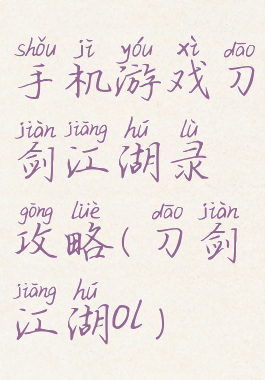 shǒu jī yóu xì dāo
手机游戏刀
jiàn jiāng hú lù
剑江湖录
gōng lüè dāo jiàn
攻略(刀剑
jiāng hú
江湖OL)